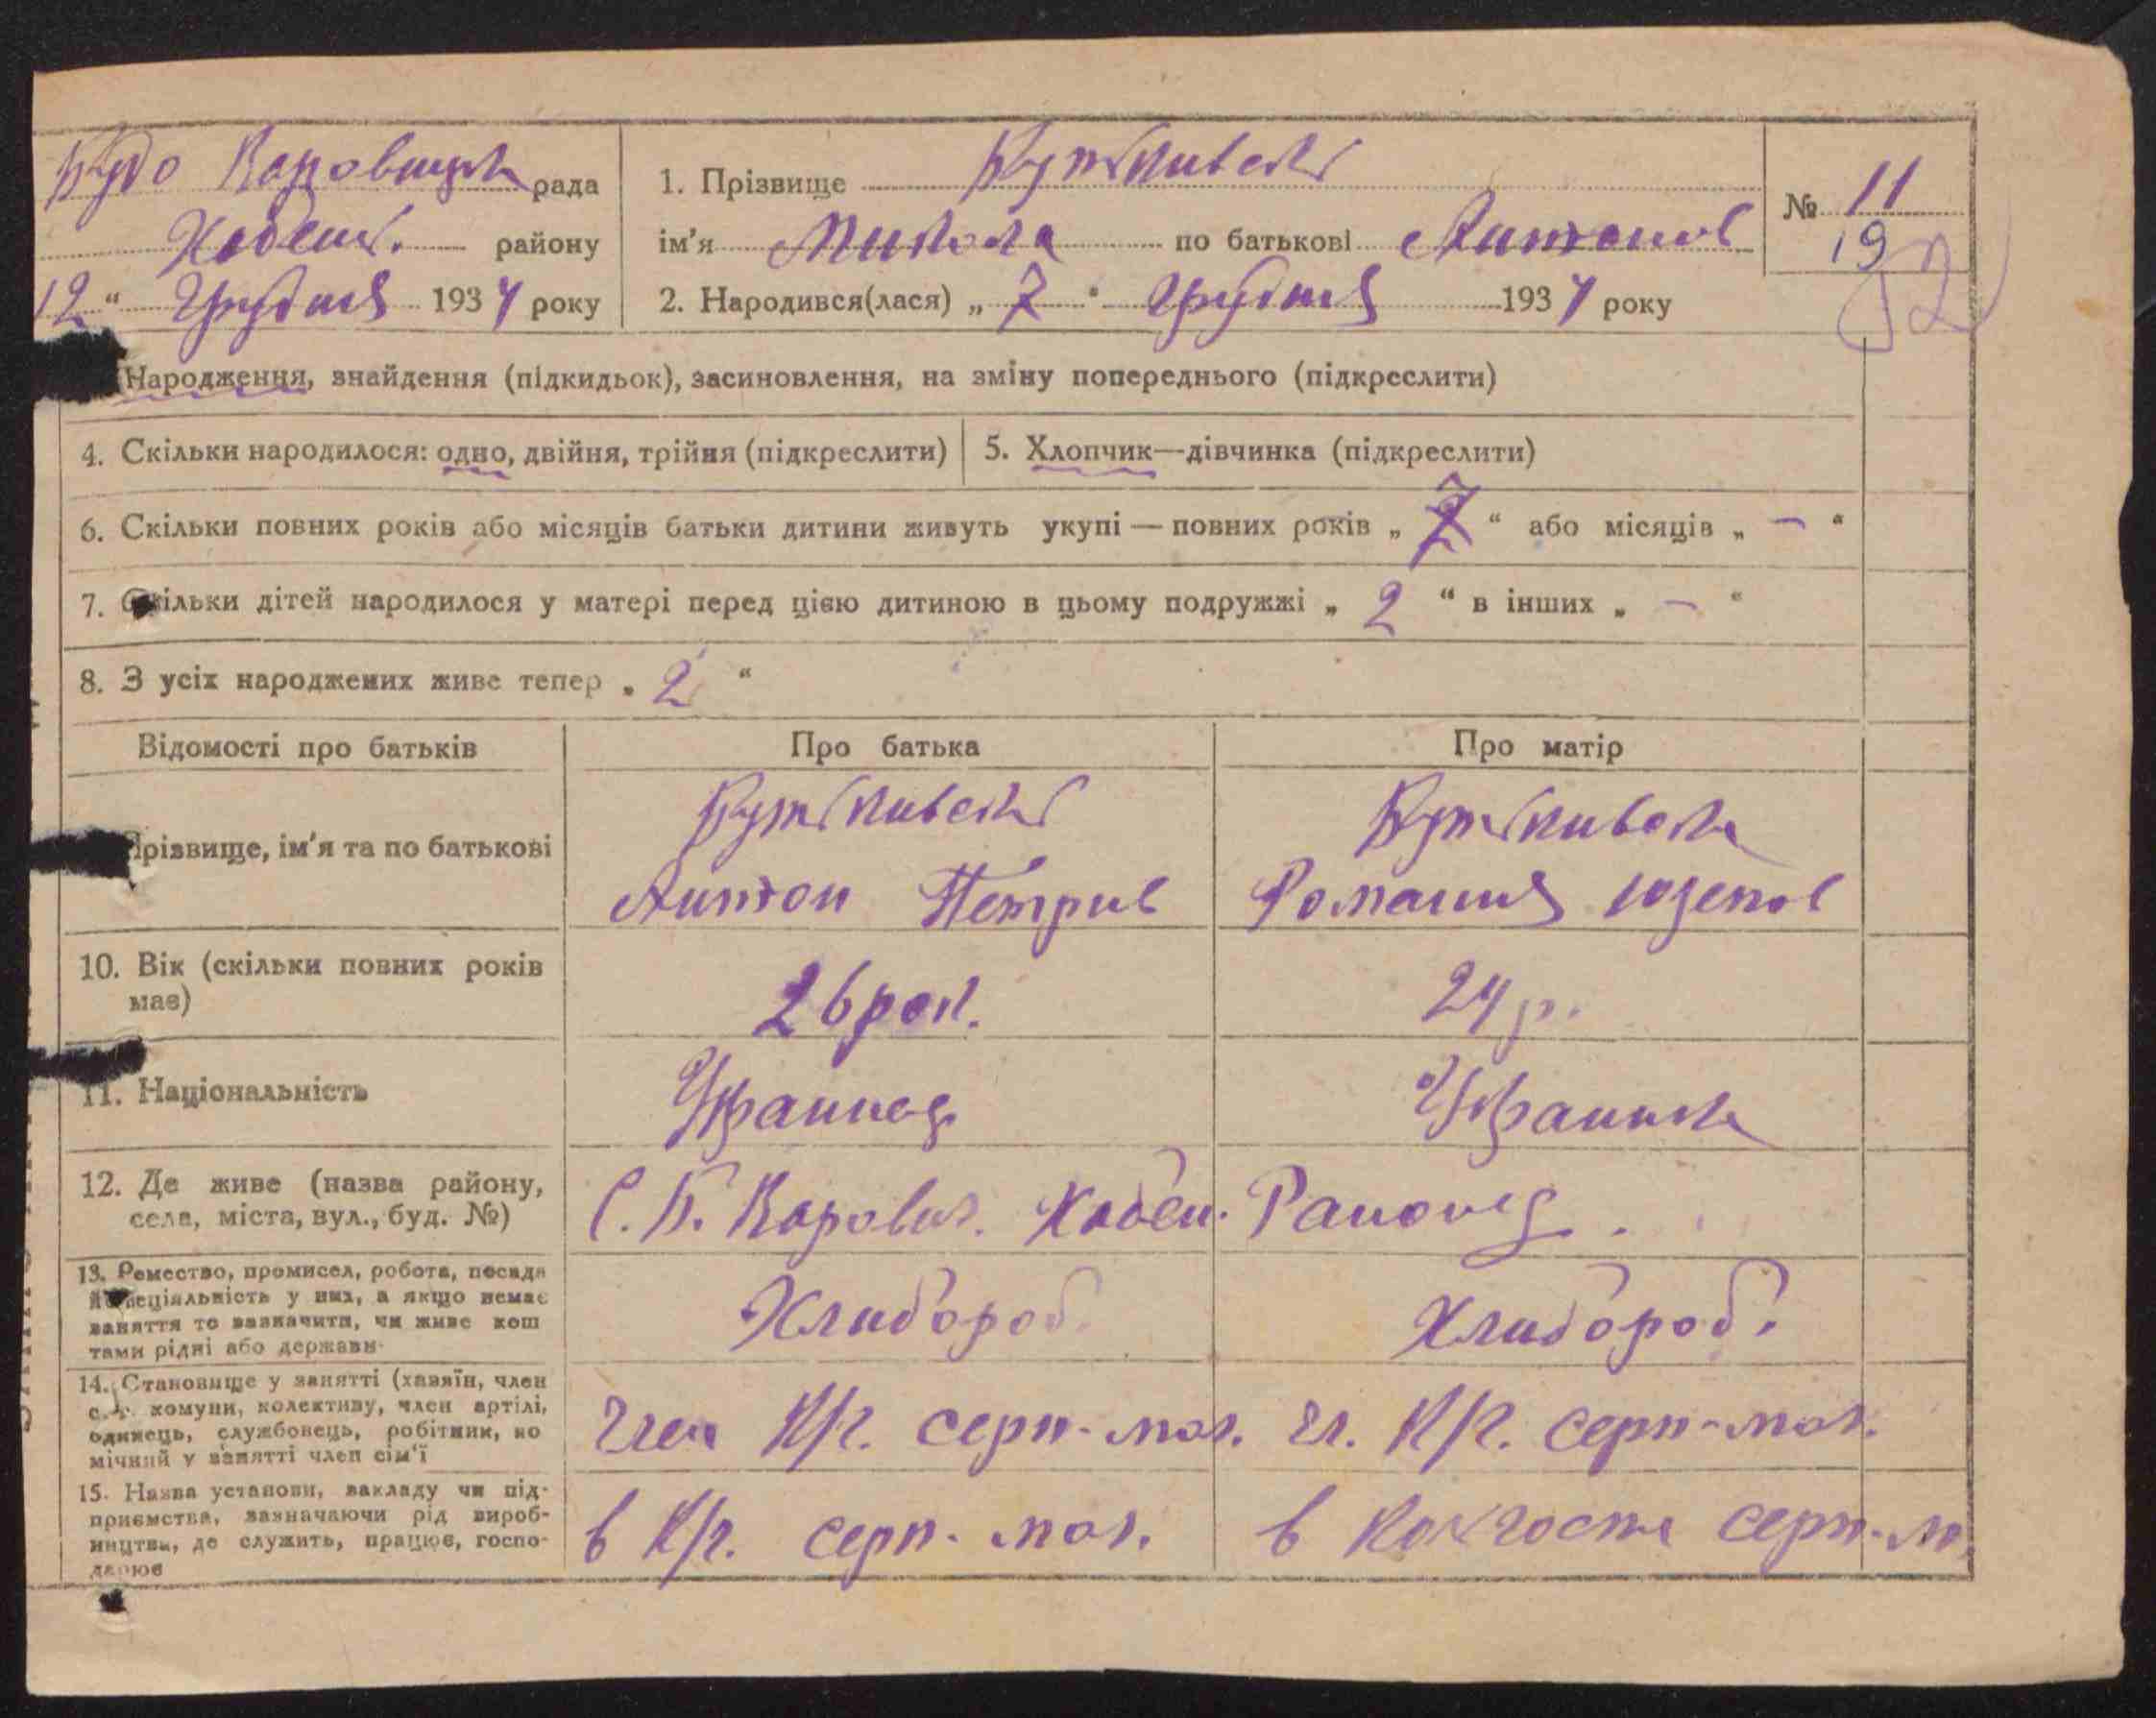 Будо Каровицька рада
Хабенс. району
12 " Грудня 1934 року
1. Прізвище Бутківські
ім'я Микола по батькові Антонов
2. Народився(лася) „ 7 " грудня 1934 року
№ 11
19
52
Народження, знайдення (підкидьок), засиновлення, на зміну попереднього (підкреслити)
4. Скільки народилося: одно, двійня, трійня (підкреслити)
5. Хлопчик—дівчинка (підкреслити)
6. Скільки повних років або місяців батьки дитини живуть укупі — повних років „ 7 " або місяців „ — "
7. Скільки дітей народилося у матері перед цією дитиною в цьому подружжі „ 2 " в інших „ — "
8. З усіх народжених живе тепер „ 2 "
Відомості про батьків Про батька Про матір
Прізвище, ім'я та по батькові
Антон Петрив
Романия Юзепов
10. Вік (скільки повних років
має)
26 рок.
24 р.
11. Національність
Украинец
Украинка
12. Де живе (назва району,
села, міста, вул., буд. №)
С. Б. Карович. Хабен.
13. Ремество, промисел, робота, посада
й спеціяльність у них, а якщо немає
заняття то зазначити, чи живе кош
тами рідні або держави
Хлибороб.
Хлибороб.
14. Становище у занятті (хазяїн, член
с.-г. комуни, колективу, член артілі,
одинець, службовець, робітник, по
мічний у занятті член сім'ї
Член К/г. серп-мол.
чл. К/г. серп-мол.
15. Назва установи, закладу чи під-
приємства, зазначаючи рід вироб-
ництва, де служить, працює, госпо-
дарює
в К/г. серп. мол.
в Колгоспе серп-мо